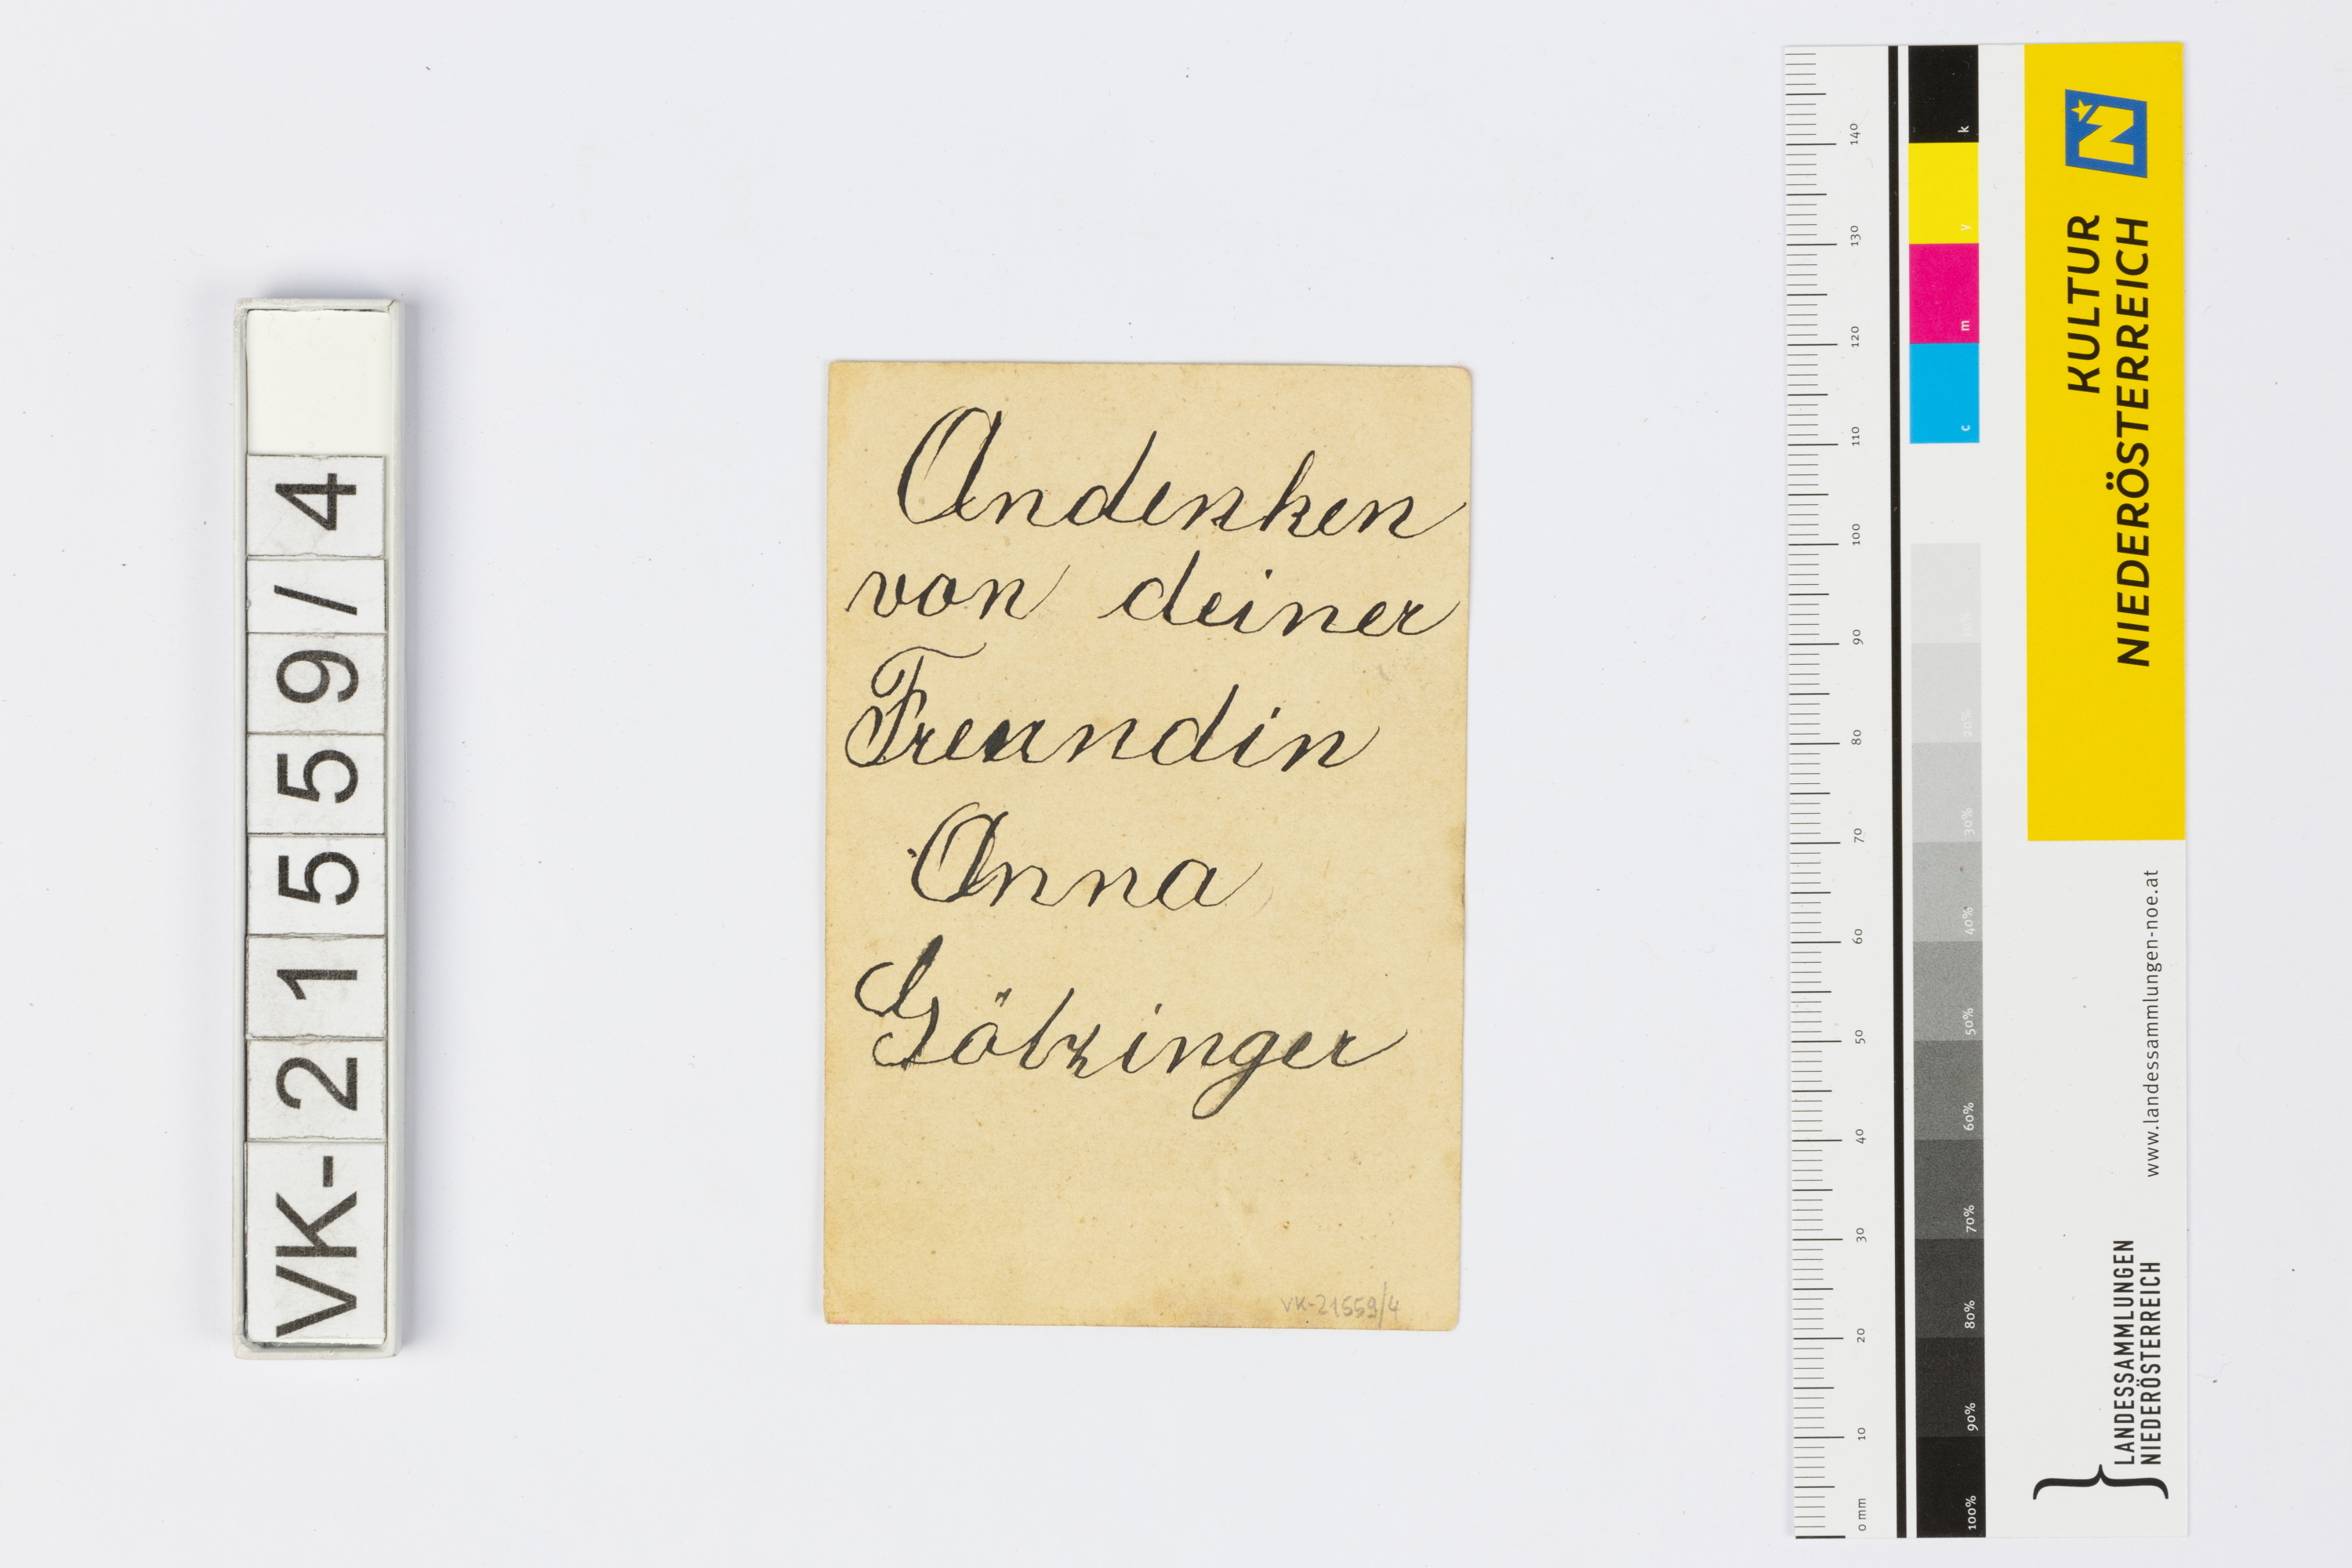 VK-21559/4
Andenken
von deiner
Freundin
Anna
Götzinger
VK-21559/4
0 mm
10
20
30
40
50
60
70
80
90
100
110
120
130
140
k
y
m
c
10%
20%
30%
40%
50%
60%
70%
80%
90%
100%
KULTUR
NIEDERÖSTERREICH
N
www.landessammlungen-noe.at
LANDESSAMMLUNGEN
NIEDERÖSTERREICH